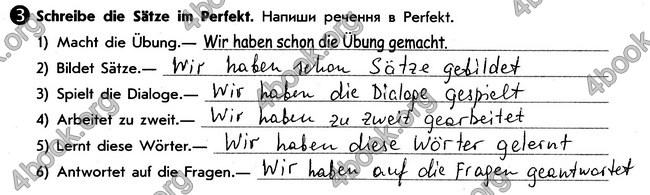 3 Schreibe die Sätze im Perfekt. Напиши речення в Perfekt.
1) Macht die Übung.— Wir haben schon die Übung gemacht.
2) Bildet Sätze.— Wir haben schon Sätze gebildet
3) Spielt die Dialoge.— Wir haben die Dialoge gespielt
4) Arbeitet zu zweit.— Wir haben zu zweit gearbeitet
5) Lernt diese Wörter.— Wir haben diese Wörter gelernt
6) Antwortet auf die Fragen.— Wir haben auf die Fragen geantwortet
4book.org
4book.org
4book.org
4book.org
4book.org
4book.org